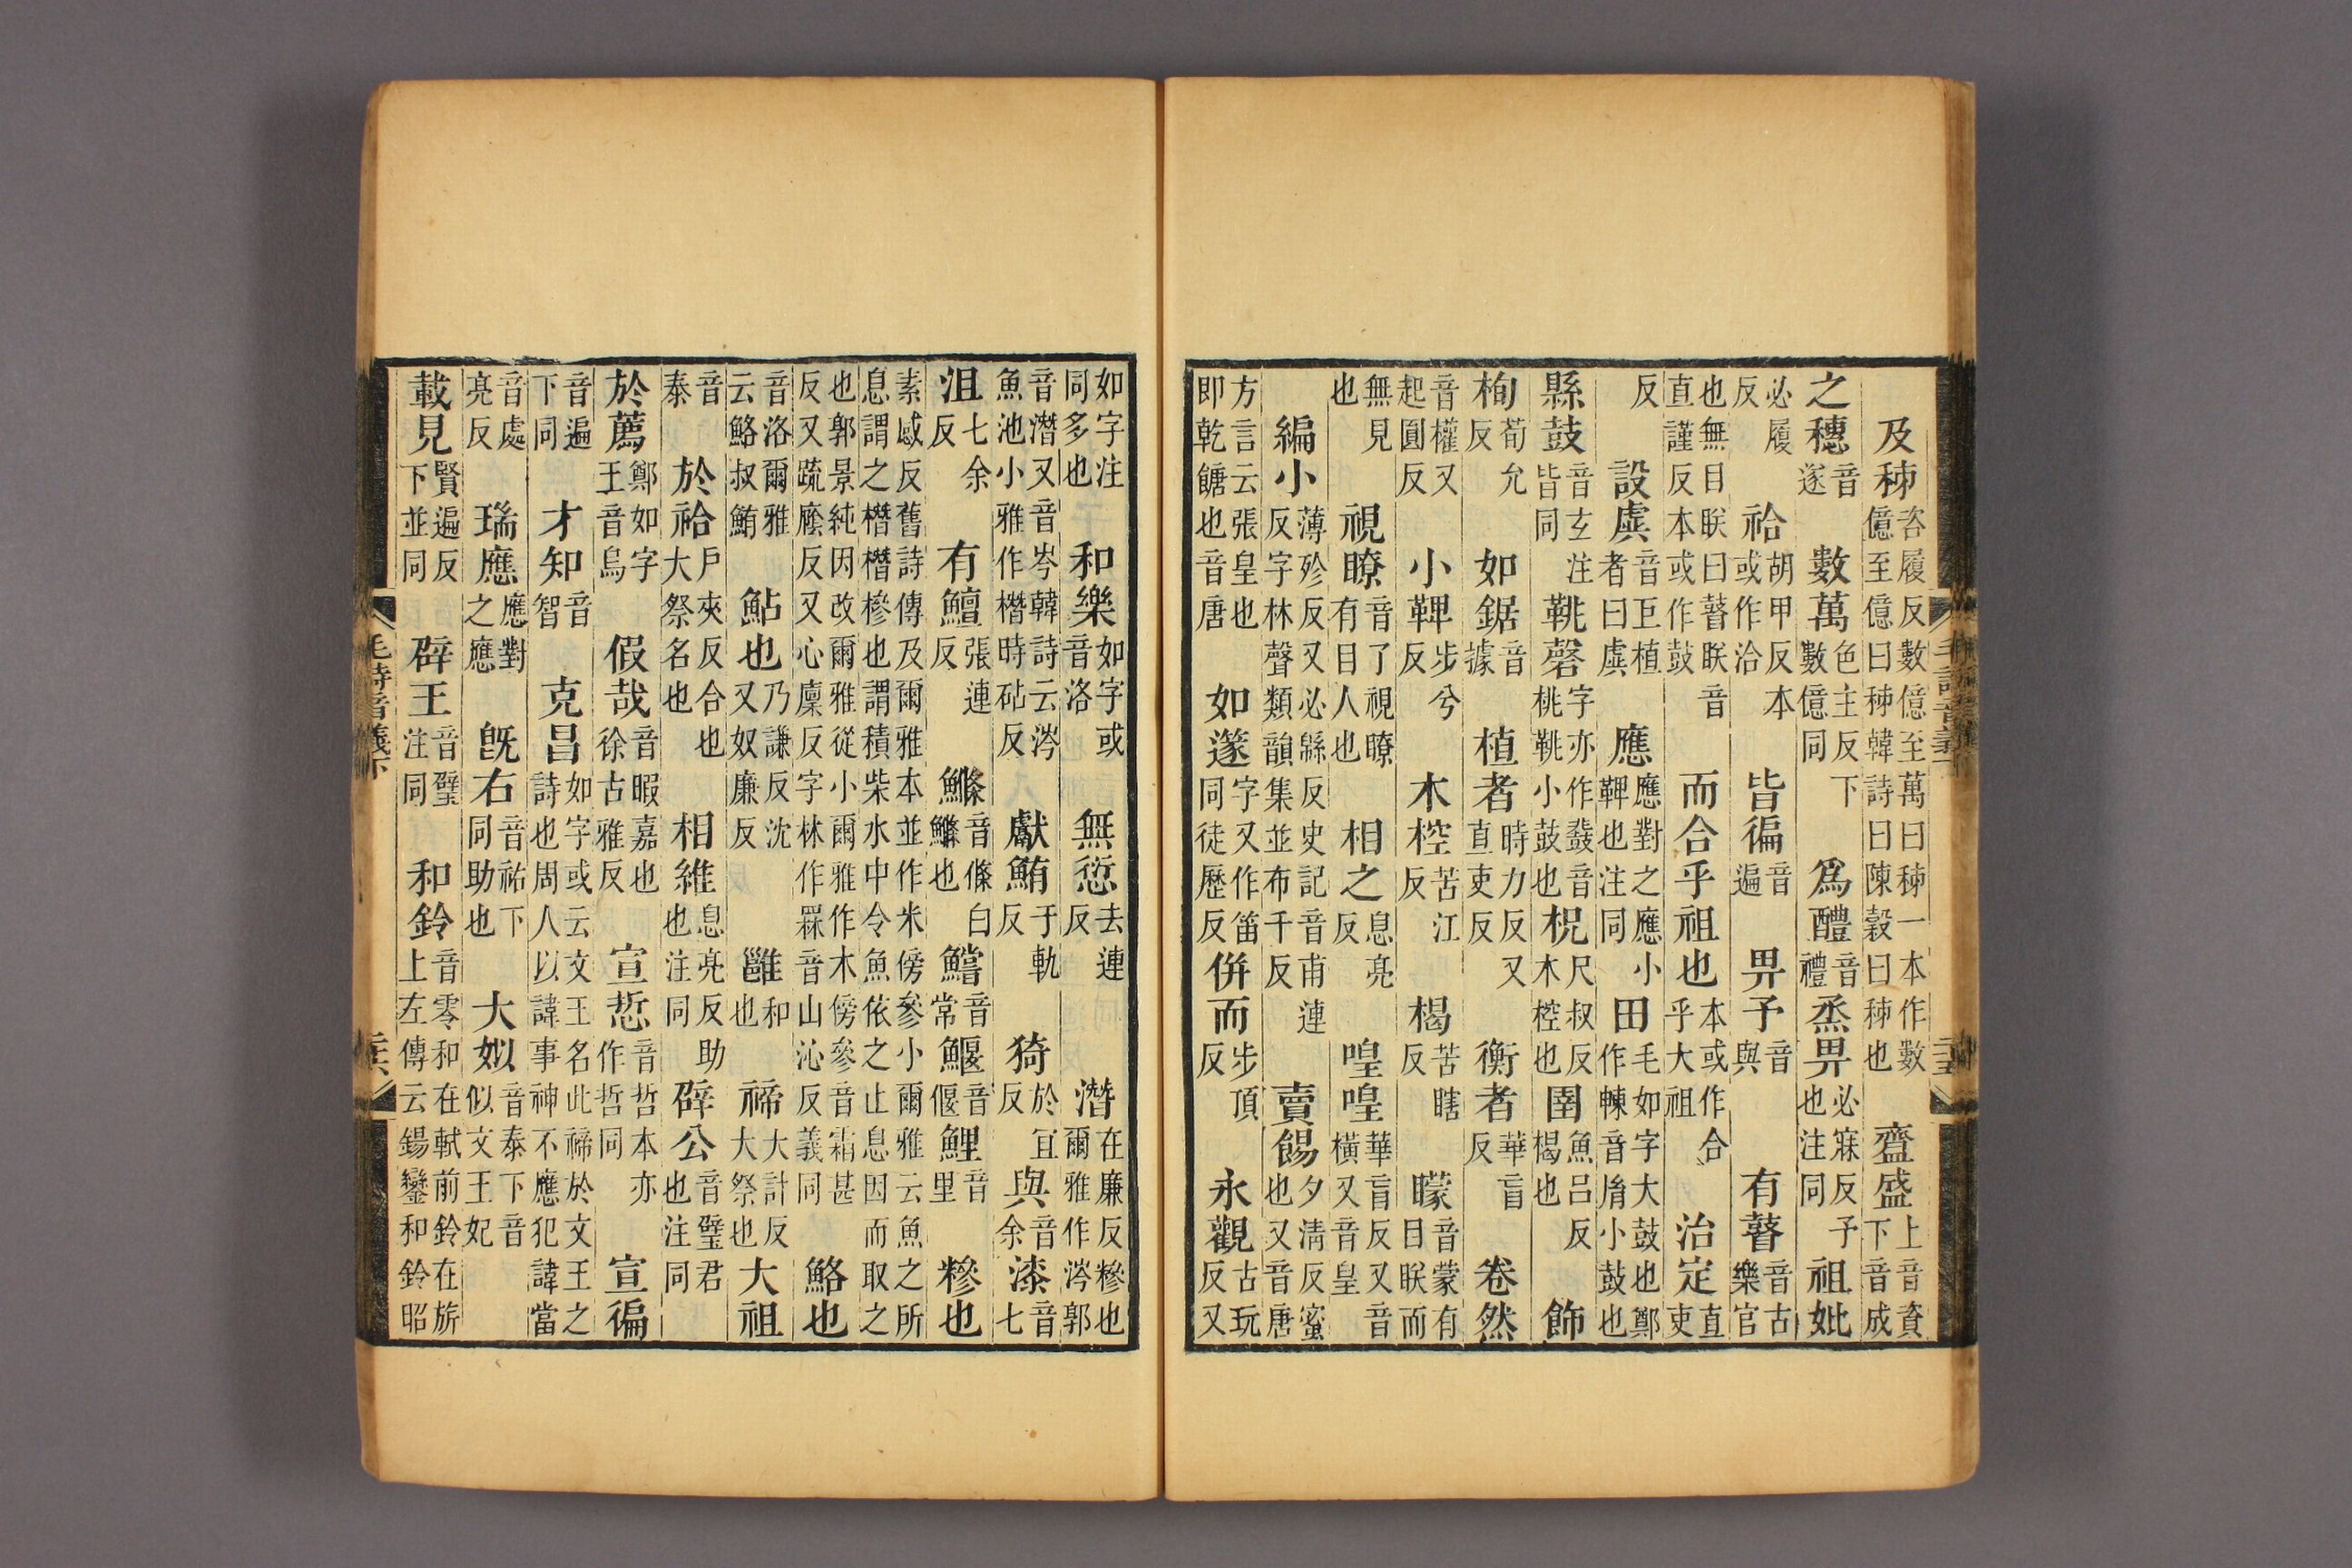 及秭咨履反數億至萬曰秭一本作數億至億曰秭韓詩曰陳穀曰秭也齍盛上音資下音成
之穗音遂數萬色主反下數億同爲醴音禮烝畀必寐反予也注同祖妣
必履反祫胡甲反本或作洽皆徧音遍畀予音與有瞽音古樂官
也無目眹曰瞽眹音直謹反本或作鼓而合乎祖也本或作合乎大祖治定直吏
反設虡音巨植者曰虡應應對之應小鞞也注同田毛如字大鼓也鄭作朄音胤小鼓也
縣鼓音玄注皆同鞉磬字亦作鼗音桃鞉小鼓也柷尺叔反木椌也圉魚呂反楬也飾
栒荀允反如鋸音據植者時力反又直吏反衡者華盲反卷然
音權又起圓反小鞞步兮反木椌苦江反楬苦瞎反矇音蒙有目眹而
無見也視瞭音了視瞭有目人也相之息亮反喤喤華盲反又音橫又音皇
編小薄殄反又必緜反史記音甫連反字林聲類韻集並布千反賣餳夕清反蜜也又音唐
方言云張皇也即乾餹也音唐如篴字又作笛同徒歷反併而步頂反永觀古玩反又
毛詩音義下
如字注同多也和樂如字或音洛無愆去連反潛在廉反糝也爾雅作涔郭
音潛又音岑韓詩云涔魚池小雅作橬時砧反獻鮪于軌反猗於宜反與音余漆音七
沮七余反有鱣張連反鰷音條白鰷也鱨音常鰋音偃鯉音里糝也
素感反舊詩傳及爾雅本並作米傍參小爾雅云魚之所息謂之橬橬槮也謂積柴水中令魚依之止息因而取之
也郭景純因改爾雅從小爾雅作木傍參音霜甚反又疏廕反又心廩反字林作罧音山沁反義同鮥也
音洛爾雅云鮥叔鮪鮎也乃謙反沈又奴廉反雝和也禘大計反大祭也大祖
音泰於祫戶夾反合也大祭名也相維息亮反助也注同辟公音璧君也注同
於薦鄭如字王音烏假哉音暇嘉也徐古雅反宣悊音哲本亦作哲同宣徧
音遍下同才知音智克昌如字或云文王名此禘於文王之詩也周人以諱事神不應犯諱當
音處亮反瑞應應對之應旣右音祐下同助也大姒音泰下音似文王妃
載見賢遍反下並同辟王音璧注同和鈴音零和在軾前鈴在旂上左傳云鍚鸞和鈴昭
毛詩音義下